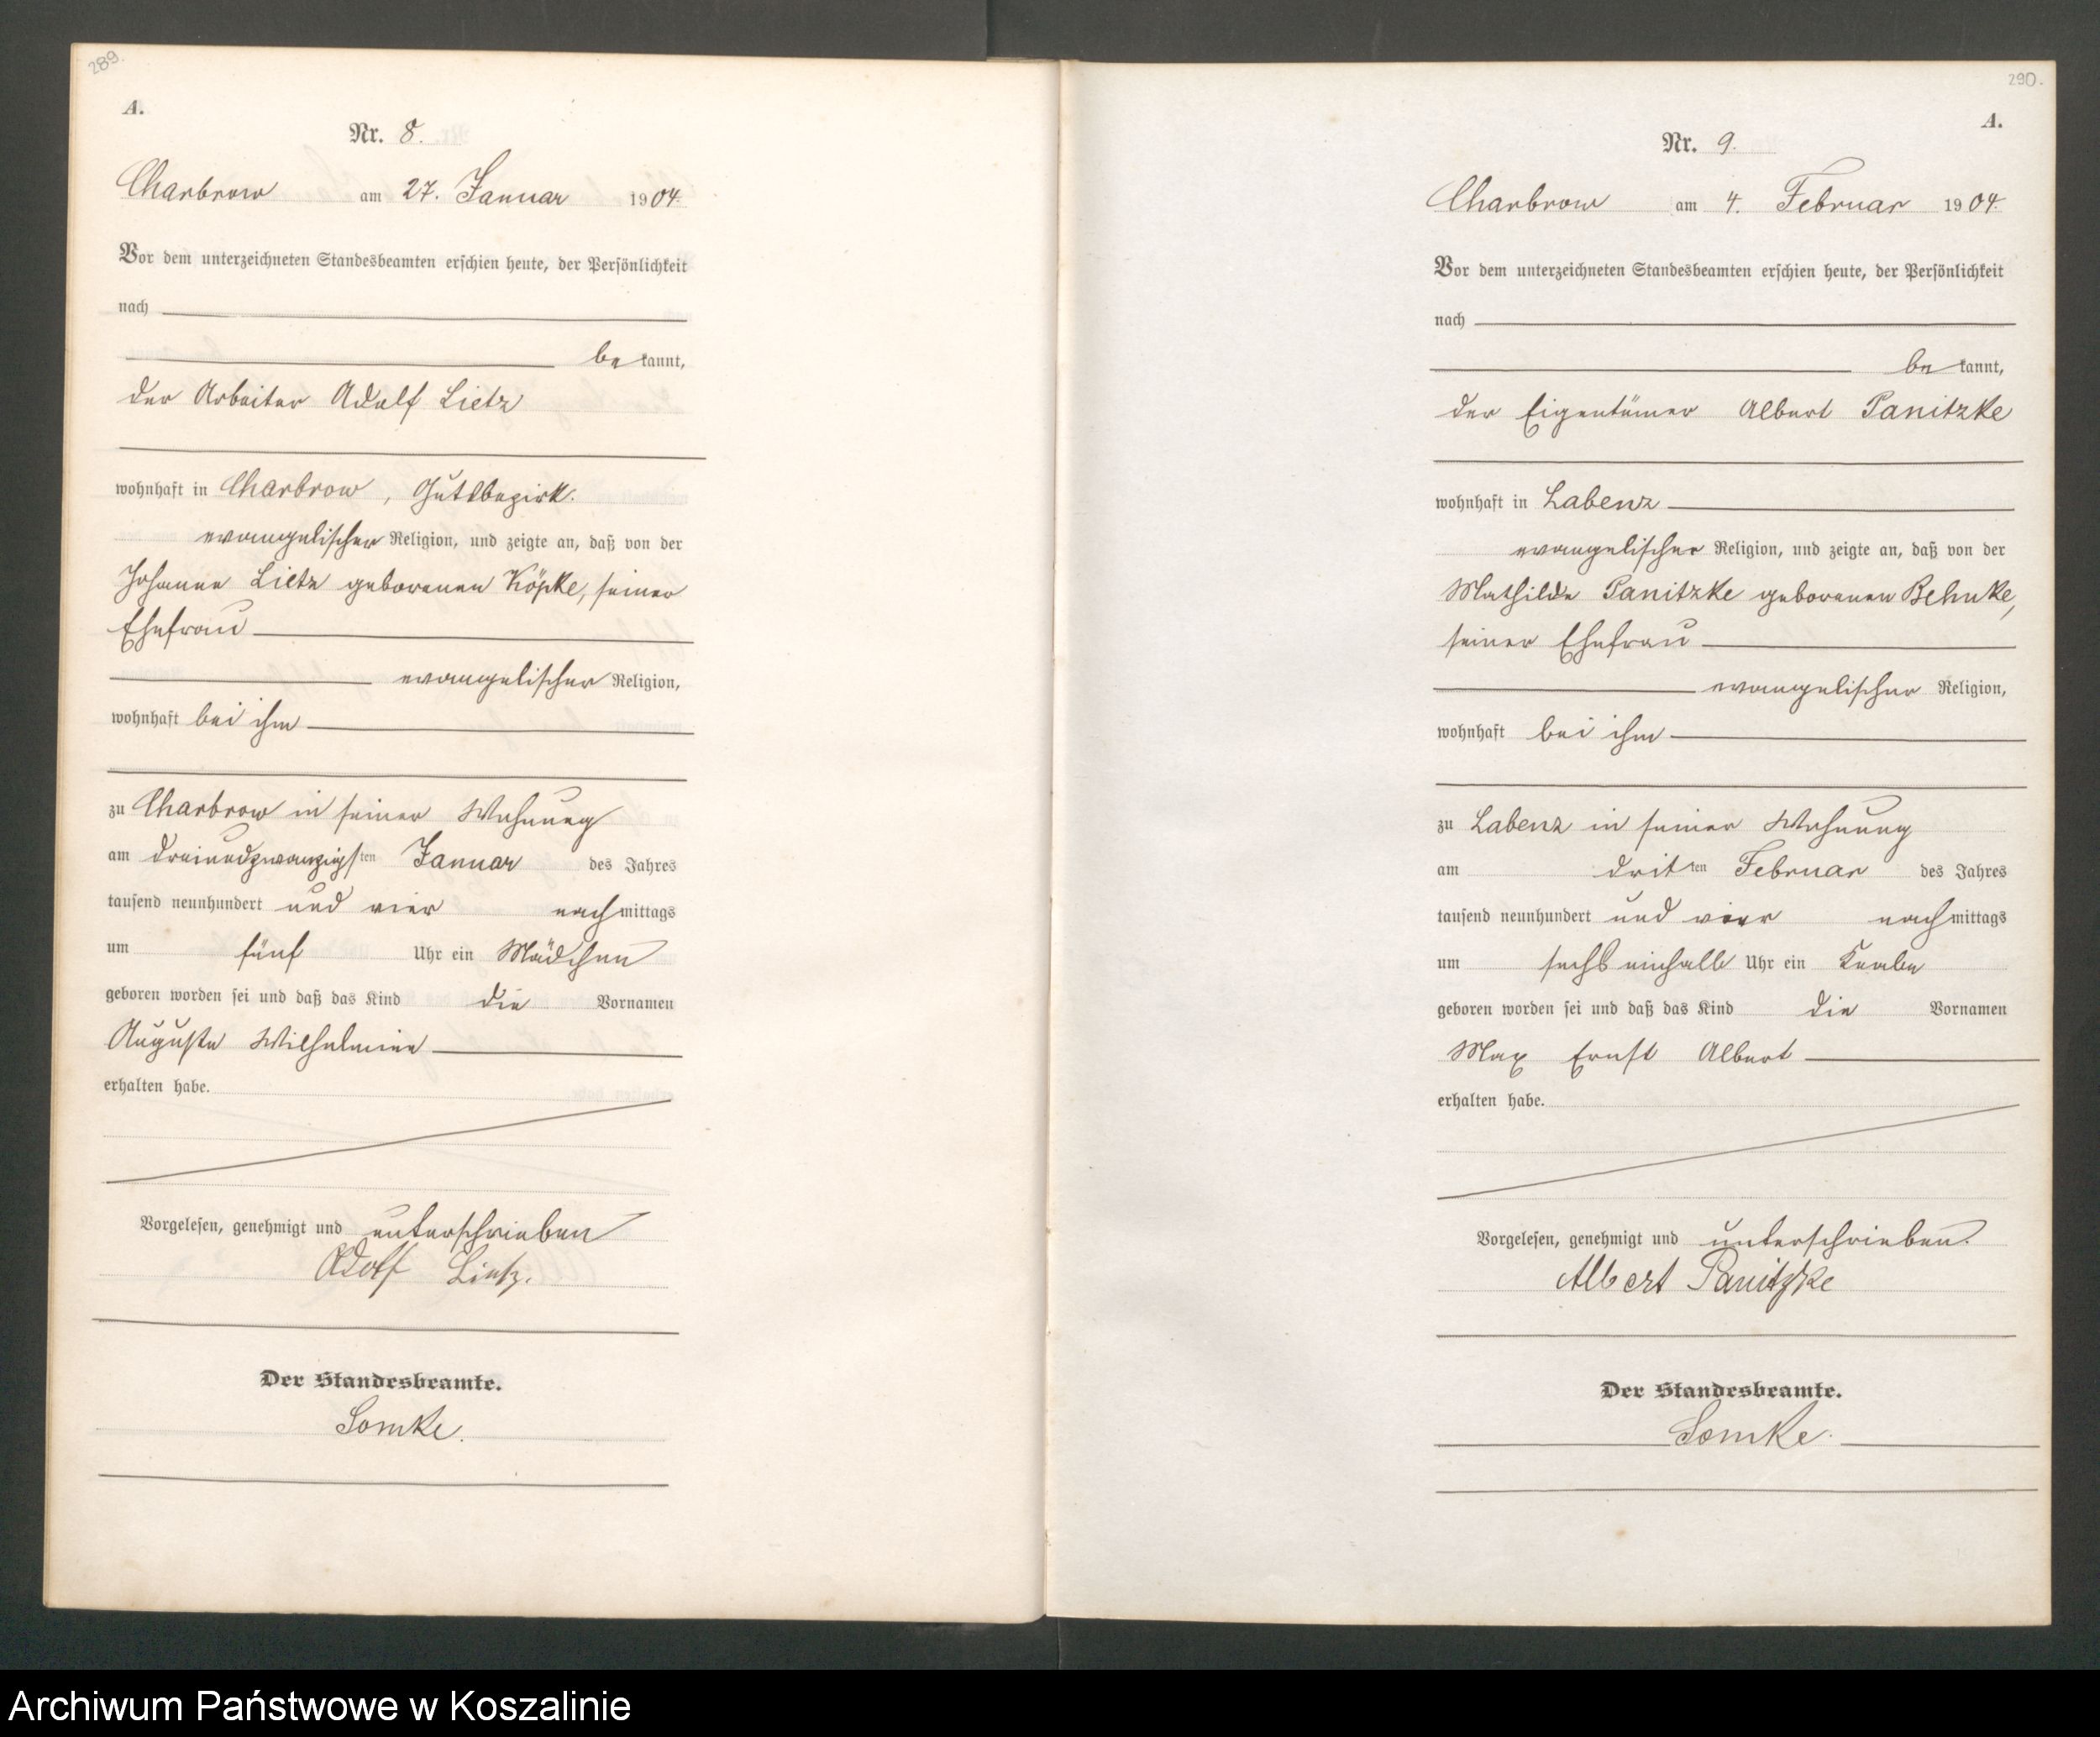 289.
A.
Nr. 8.
Charbrow am 27. Januar 1904.
Vor dem unterzeichneten Standesbeamten erschien heute, der Persönlichkeit
nach
be kannt,
der Arbeiter Adolf Lietz
wohnhaft in Charbrow, Gutsbezirk.
evangelischer Religion, und zeigte an, daß von der
Johanne Lietz geborenen Köpke, seiner
Ehefrau
evangelischer Religion,
wohnhaft bei ihm
zu Charbrow in seiner Wohnung
am dreiundzwanzigsten Januar des Jahres
tausend neunhundert und vier nachmittags
um fünf Uhr ein Mädchen
geboren worden sei und daß das Kind die Vornamen
Auguste Wilhelmine
erhalten habe.
Vorgelesen, genehmigt und unterschrieben
Adolf Lietz.
Der Standesbeamte.
290.
A.
Nr. 9.
Charbrow am 4. Februar 1904.
Vor dem unterzeichneten Standesbeamten erschien heute, der Persönlichkeit
nach
be kannt,
der Eigentümer Albert Panitzke
wohnhaft in Labenz
evangelischer Religion, und zeigte an, daß von der
Mathilde Panitzke geborenen Behnke,
seiner Ehefrau
evangelischer Religion,
wohnhaft bei ihm
zu Labenz in seiner Wohnung
am dritten Februar des Jahres
tausend neunhundert und vier nachmittags
um sechs einhalb Uhr ein Knabe
geboren worden sei und daß das Kind die Vornamen
Max Ernst Albert
erhalten habe.
Vorgelesen, genehmigt und unterschrieben.
Albert Panitzke
Der Standesbeamte.
Archiwum Państwowe w Koszalinie